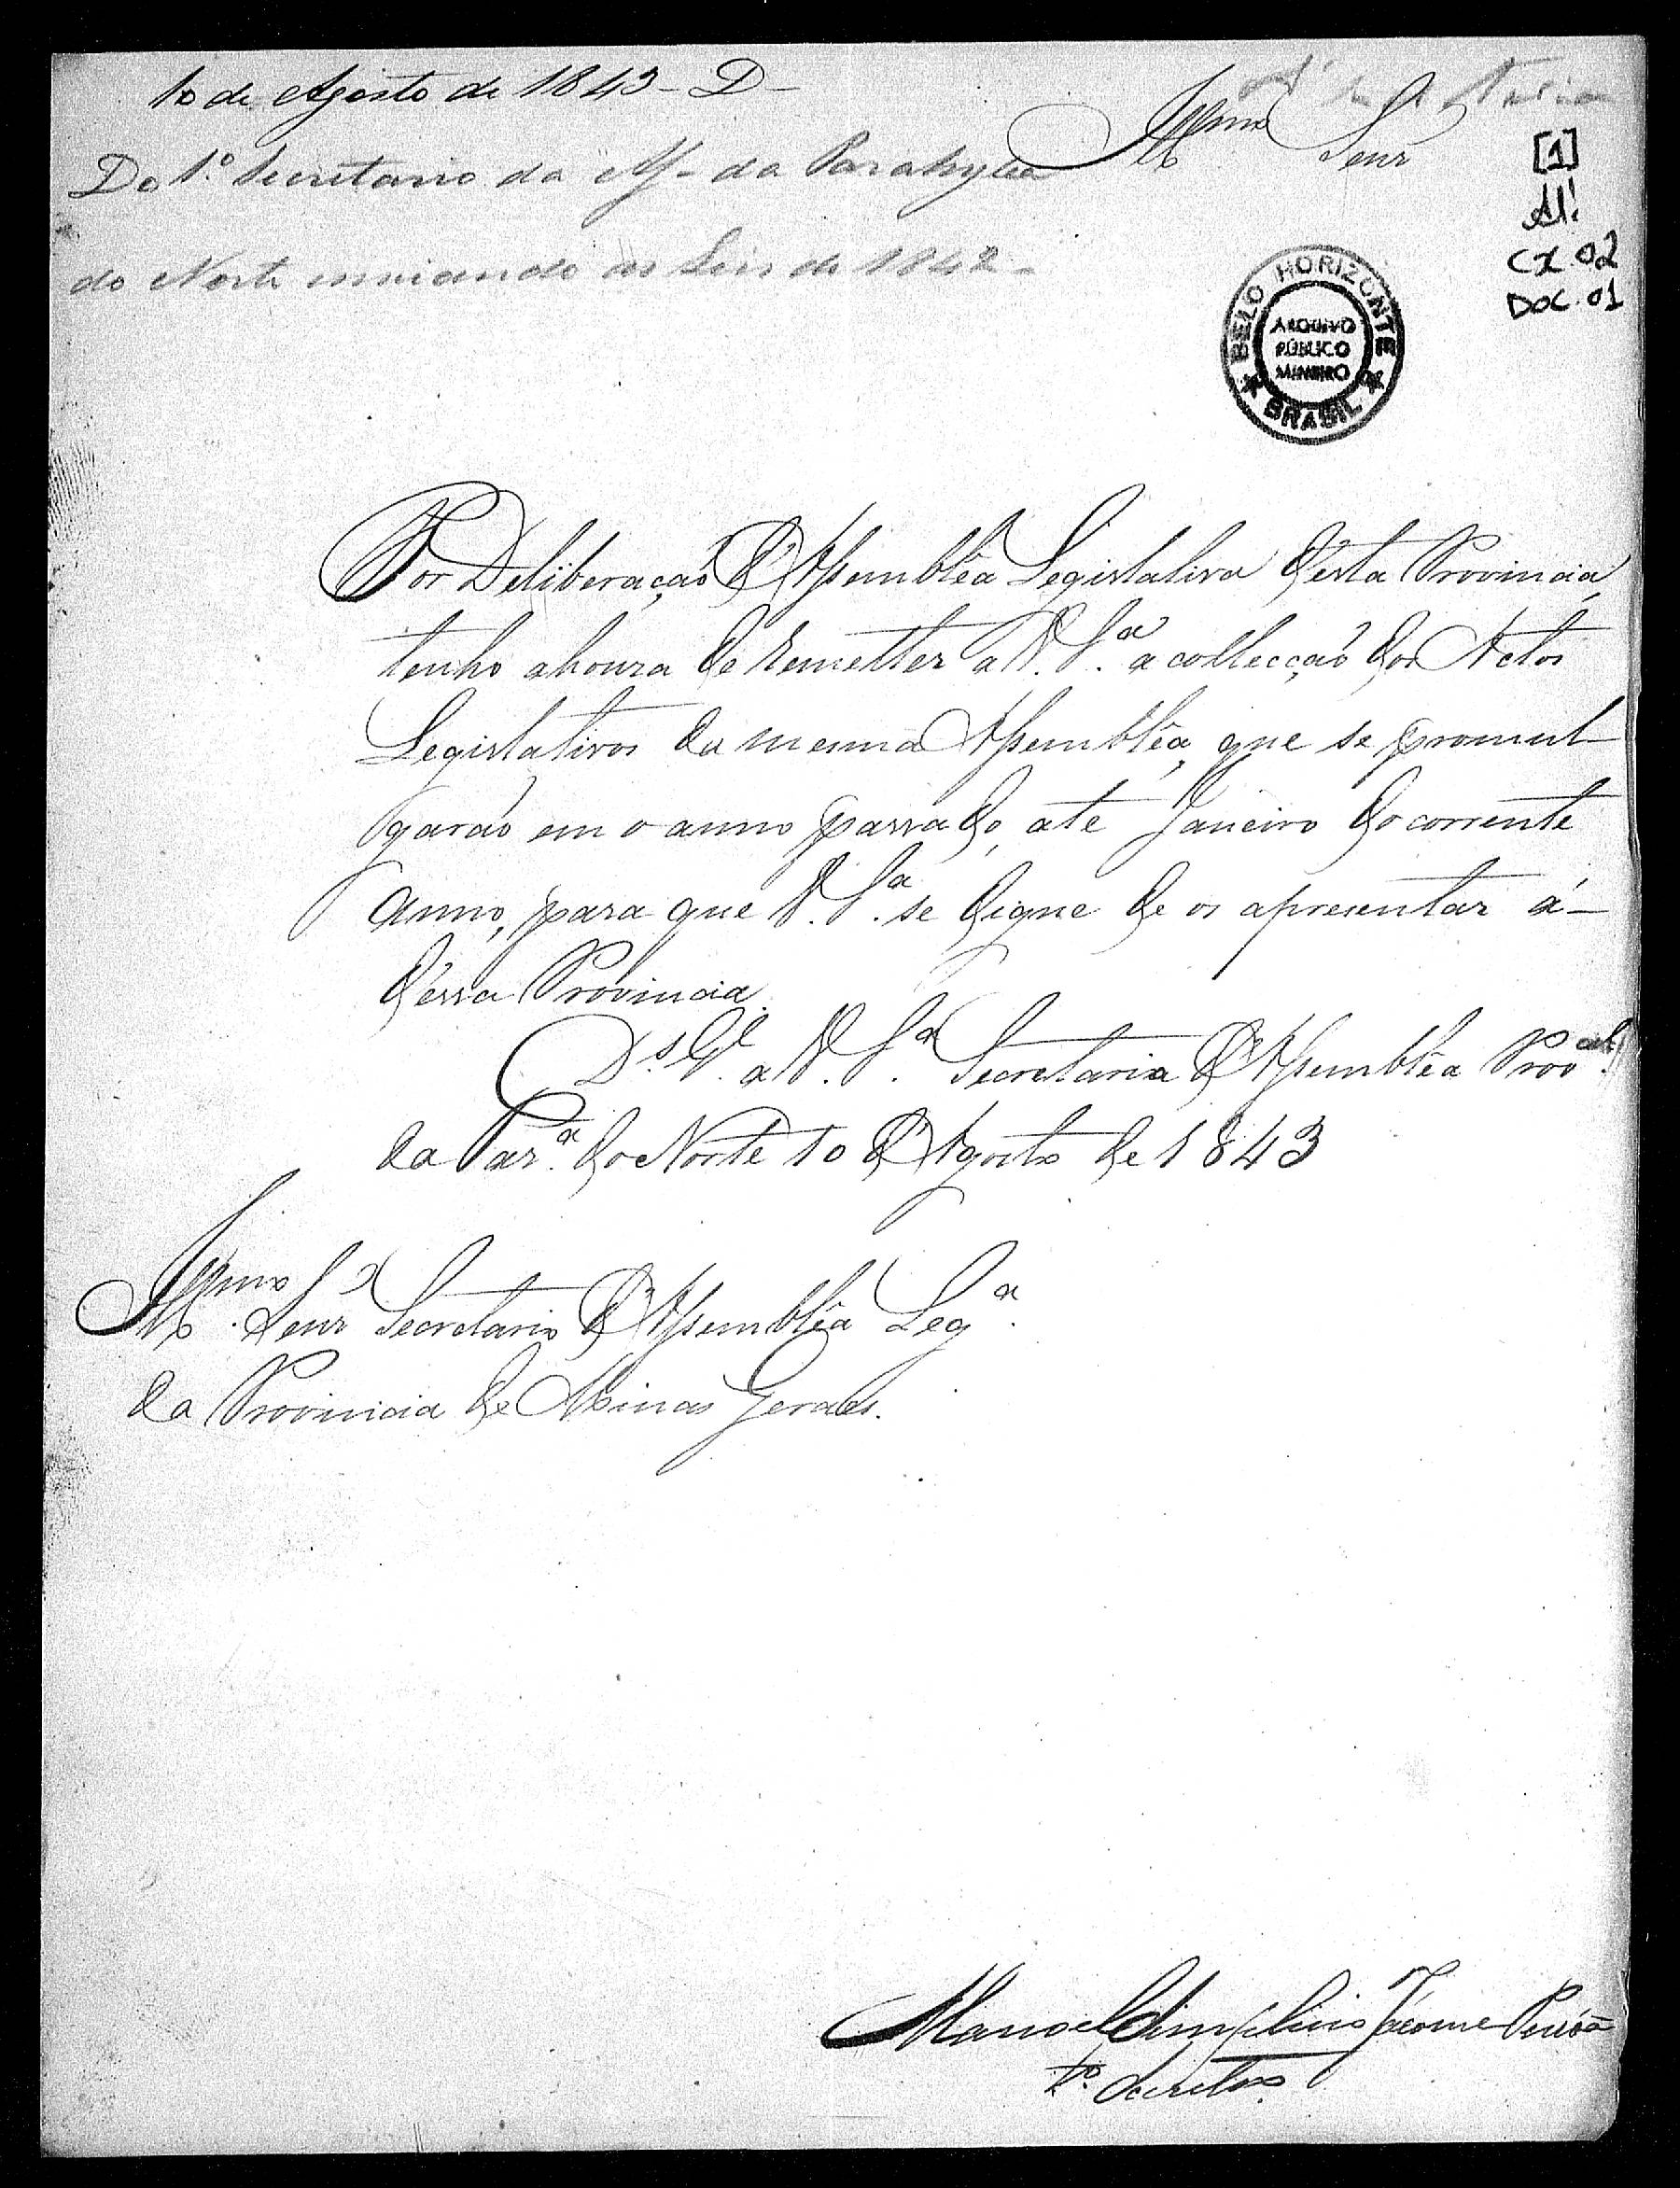 10 de Agosto de 1843 - D -
Do 1.º Secretario da Ass - da Parahyba
do Norte enviando as Leis de 1842 -
Illmo Senr
[1]
AL!
CX. 02
DOC. 01
BELO HORIZONTE
ARQUIVO
PÚBLICO
MINEIRO
BRASIL
Por Deliberação d'Assembléa Legislativa d'esta Provincia,
tenho ahonra de remetter a V. S.ª a collecção dos Actos
Legislativos da mesma Assembléa, que se promul-
garão em o anno passado, até Janeiro do corrente
anno, para que V. S.ª se digne de os apresentar á -
d'essa Provincia.
D.s G.e a V. S.ª Secretaria d'Assembléa Prov.al
da Par.ª do Norte 10 d'Agosto de 1843
Illmo Senr Secretario d'Assembléa Leg.ª
da Provincia de Minas Geraes.
Manoel Simplicio Jácome Pessôa
1º Secretro.